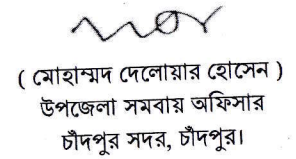 ( মোহাম্মদ দেলোয়ার হোসেন )
উপজেলা সমবায় অফিসার
চাঁদপুর সদর, চাঁদপুর।